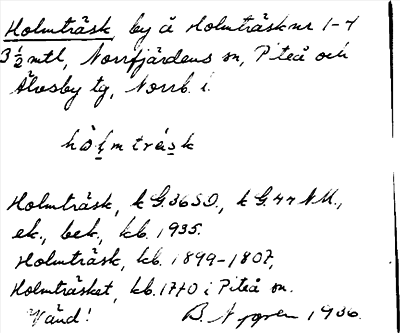 Holmträsk by å Holmträsk nr 1-4
3 1/2 mtl, Norrfjärdens sn, Piteå och
Älvsby tg, Norrb. l.
hålmträsk
Holmträsk, k G. 36 SO., k G. 44 NV.,
ek., bek., kb. 1935.
Holmträsk, kb. 1899-1807,
Holmträsket, kb. 1770 i Piteå sn.
Vänd! B Nygren 1936.